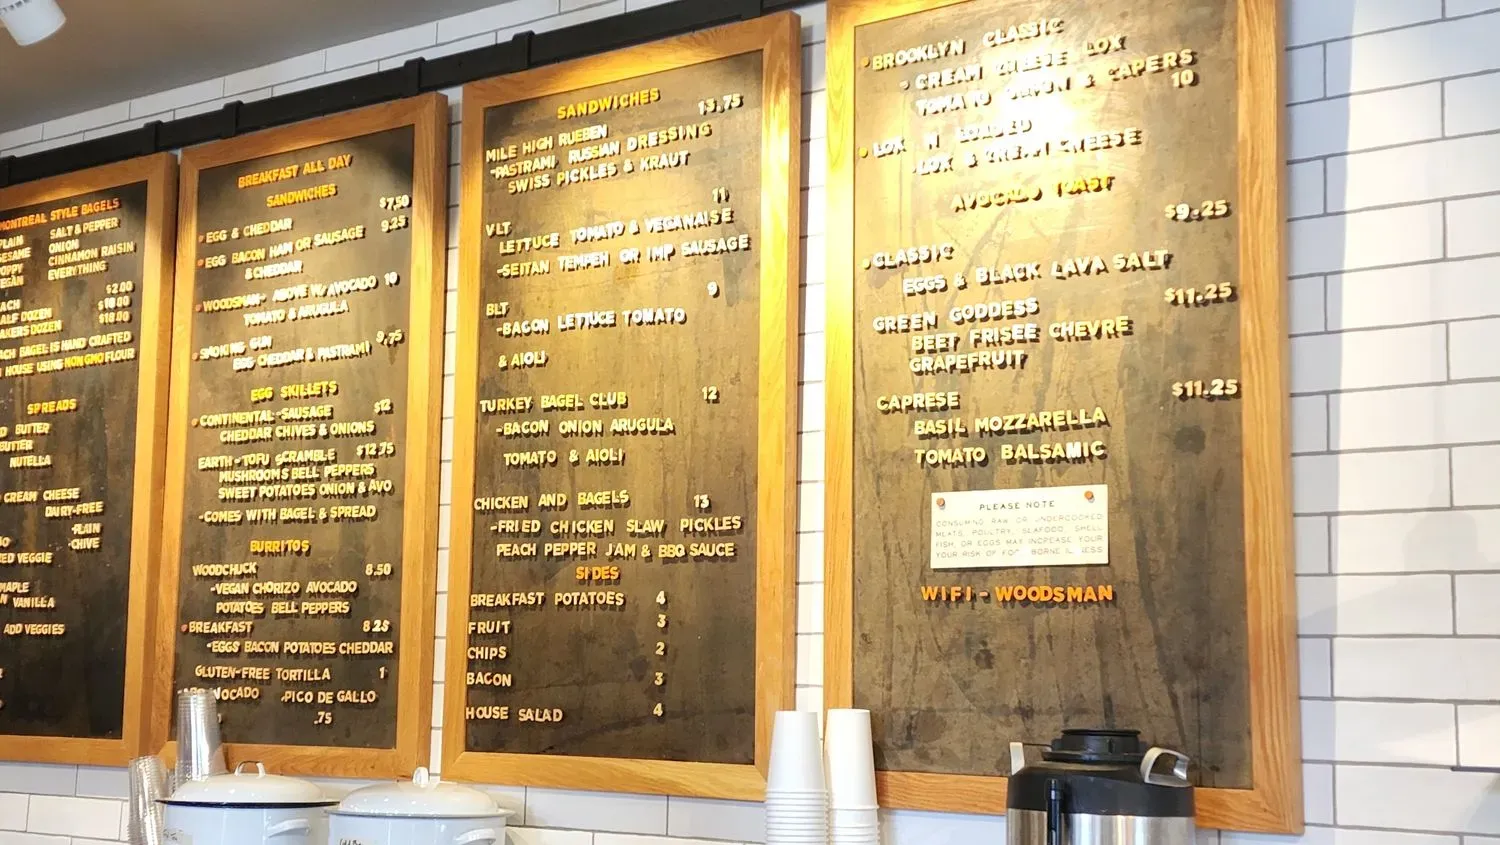 MONTREAL STYLE BAGELS
SALT & PEPPER
ONION
CINNAMON RAISIN
EVERYTHING
$2.00
$10.00
$18.00
BAGEL IS HAND CRAFTED
HOUSE USING NON GMO FLOUR
SPREADS
BUTTER
NUTELLA
CREAM CHEESE
DAIRY-FREE
-PLAIN
-CHIVE
VEGGIE
VANILLA
ADD VEGGIES
BREAKFAST ALL DAY
SANDWICHES
$7,50
EGG & CHEDDAR
EGG BACON HAM OR SAUSAGE 9.25
& CHEDDAR
WOODSMAN- ABOVE W/ AVOCADO 10
TOMATO & ARUGULA
SMOKING GUN 9.75
EGG CHEDDAR & PASTRAMI
EGG SKILLETS
CONTINENTAL-SAUSAGE $12
CHEDDAR CHIVES & ONIONS
EARTH-TOFU SCRAMBLE $12.75
MUSHROOMS BELL PEPPERS
SWEET POTATOES ONION & AVO
-COMES WITH BAGEL & SPREAD
BURRITOS
WOODCHUCK 8.50
-VEGAN CHORIZO AVOCADO
POTATOES BELL PEPPERS
BREAKFAST 8 25
EGGS BACON POTATOES CHEDDAR
GLUTEN-FREE TORTILLA 1
PICO DE GALLO
.75
SANDWICHES
13.75
MILE HIGH RUEBEN
-PASTRAMI, RUSSIAN DRESSING
SWISS PICKLES & KRAUT
11
VLT
LETTUCE TOMATO & VEGANAISE
-SEITAN TEMPEH OR IMP SAUSAGE
9
BLT
-BACON LETTUCE TOMATO
& AIOLI
TURKEY BAGEL CLUB 12
-BACON ONION ARUGULA
TOMATO & AIOLI
CHICKEN AND BAGELS 13
-FRIED CHICKEN SLAW PICKLES
PEACH PEPPER JAM & BBQ SAUCE
SIDES
BREAKFAST POTATOES 4
FRUIT 3
CHIPS 2
BACON 3
HOUSE SALAD 4
BROOKLYN CLASSIC
CREAM CHEESE LOX
TOMATO ONION & CAPERS
10
LOX N LOADED
LOX & CREAM CHEESE
AVOCADO TOAST
$9.25
CLASSIC
EGGS & BLACK LAVA SALT
GREEN GODDESS $11.25
BEET FRISEE CHEVRE
GRAPEFRUIT
CAPRESE $11.25
BASIL MOZZARELLA
TOMATO BALSAMIC
PLEASE NOTE
CONSUMING RAW OR UNDERCOOKED
MEATS, POULTRY, SEAFOOD, SHELL
FISH, OR EGGS MAY INCREASE YOUR
YOUR RISK OF FOO BORNE ILLNESS
WIFI - WOODSMAN